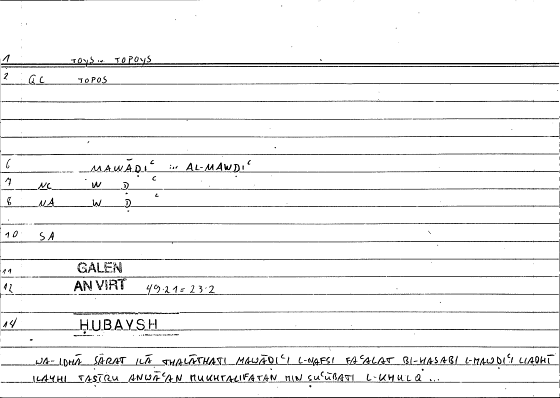 1 TOYS in TOPOYS
2 GC TOPOS
6 MAWĀḌIᶜ in AL-MAWḌIᶜ
7 NC W Ḍ ᶜ
8 NA W Ḍ ᶜ
10 SA
11 GALEN
12 AN VIRT 49.21 = 23.2
14 ḤUBAYSH
WA-IDHĀ ṢĀRAT ILĀ THALĀTHATI MAWĀḌIᶜI L-NAFSI FAᶜALAT BI-ḤASABI L-MAWḌIᶜI LLADHĪ
ILAYHI TAṢĪRU ANWĀᶜAN MUKHTALIFATAN MIN ṢUᶜŪBATI L-KHULQ ...